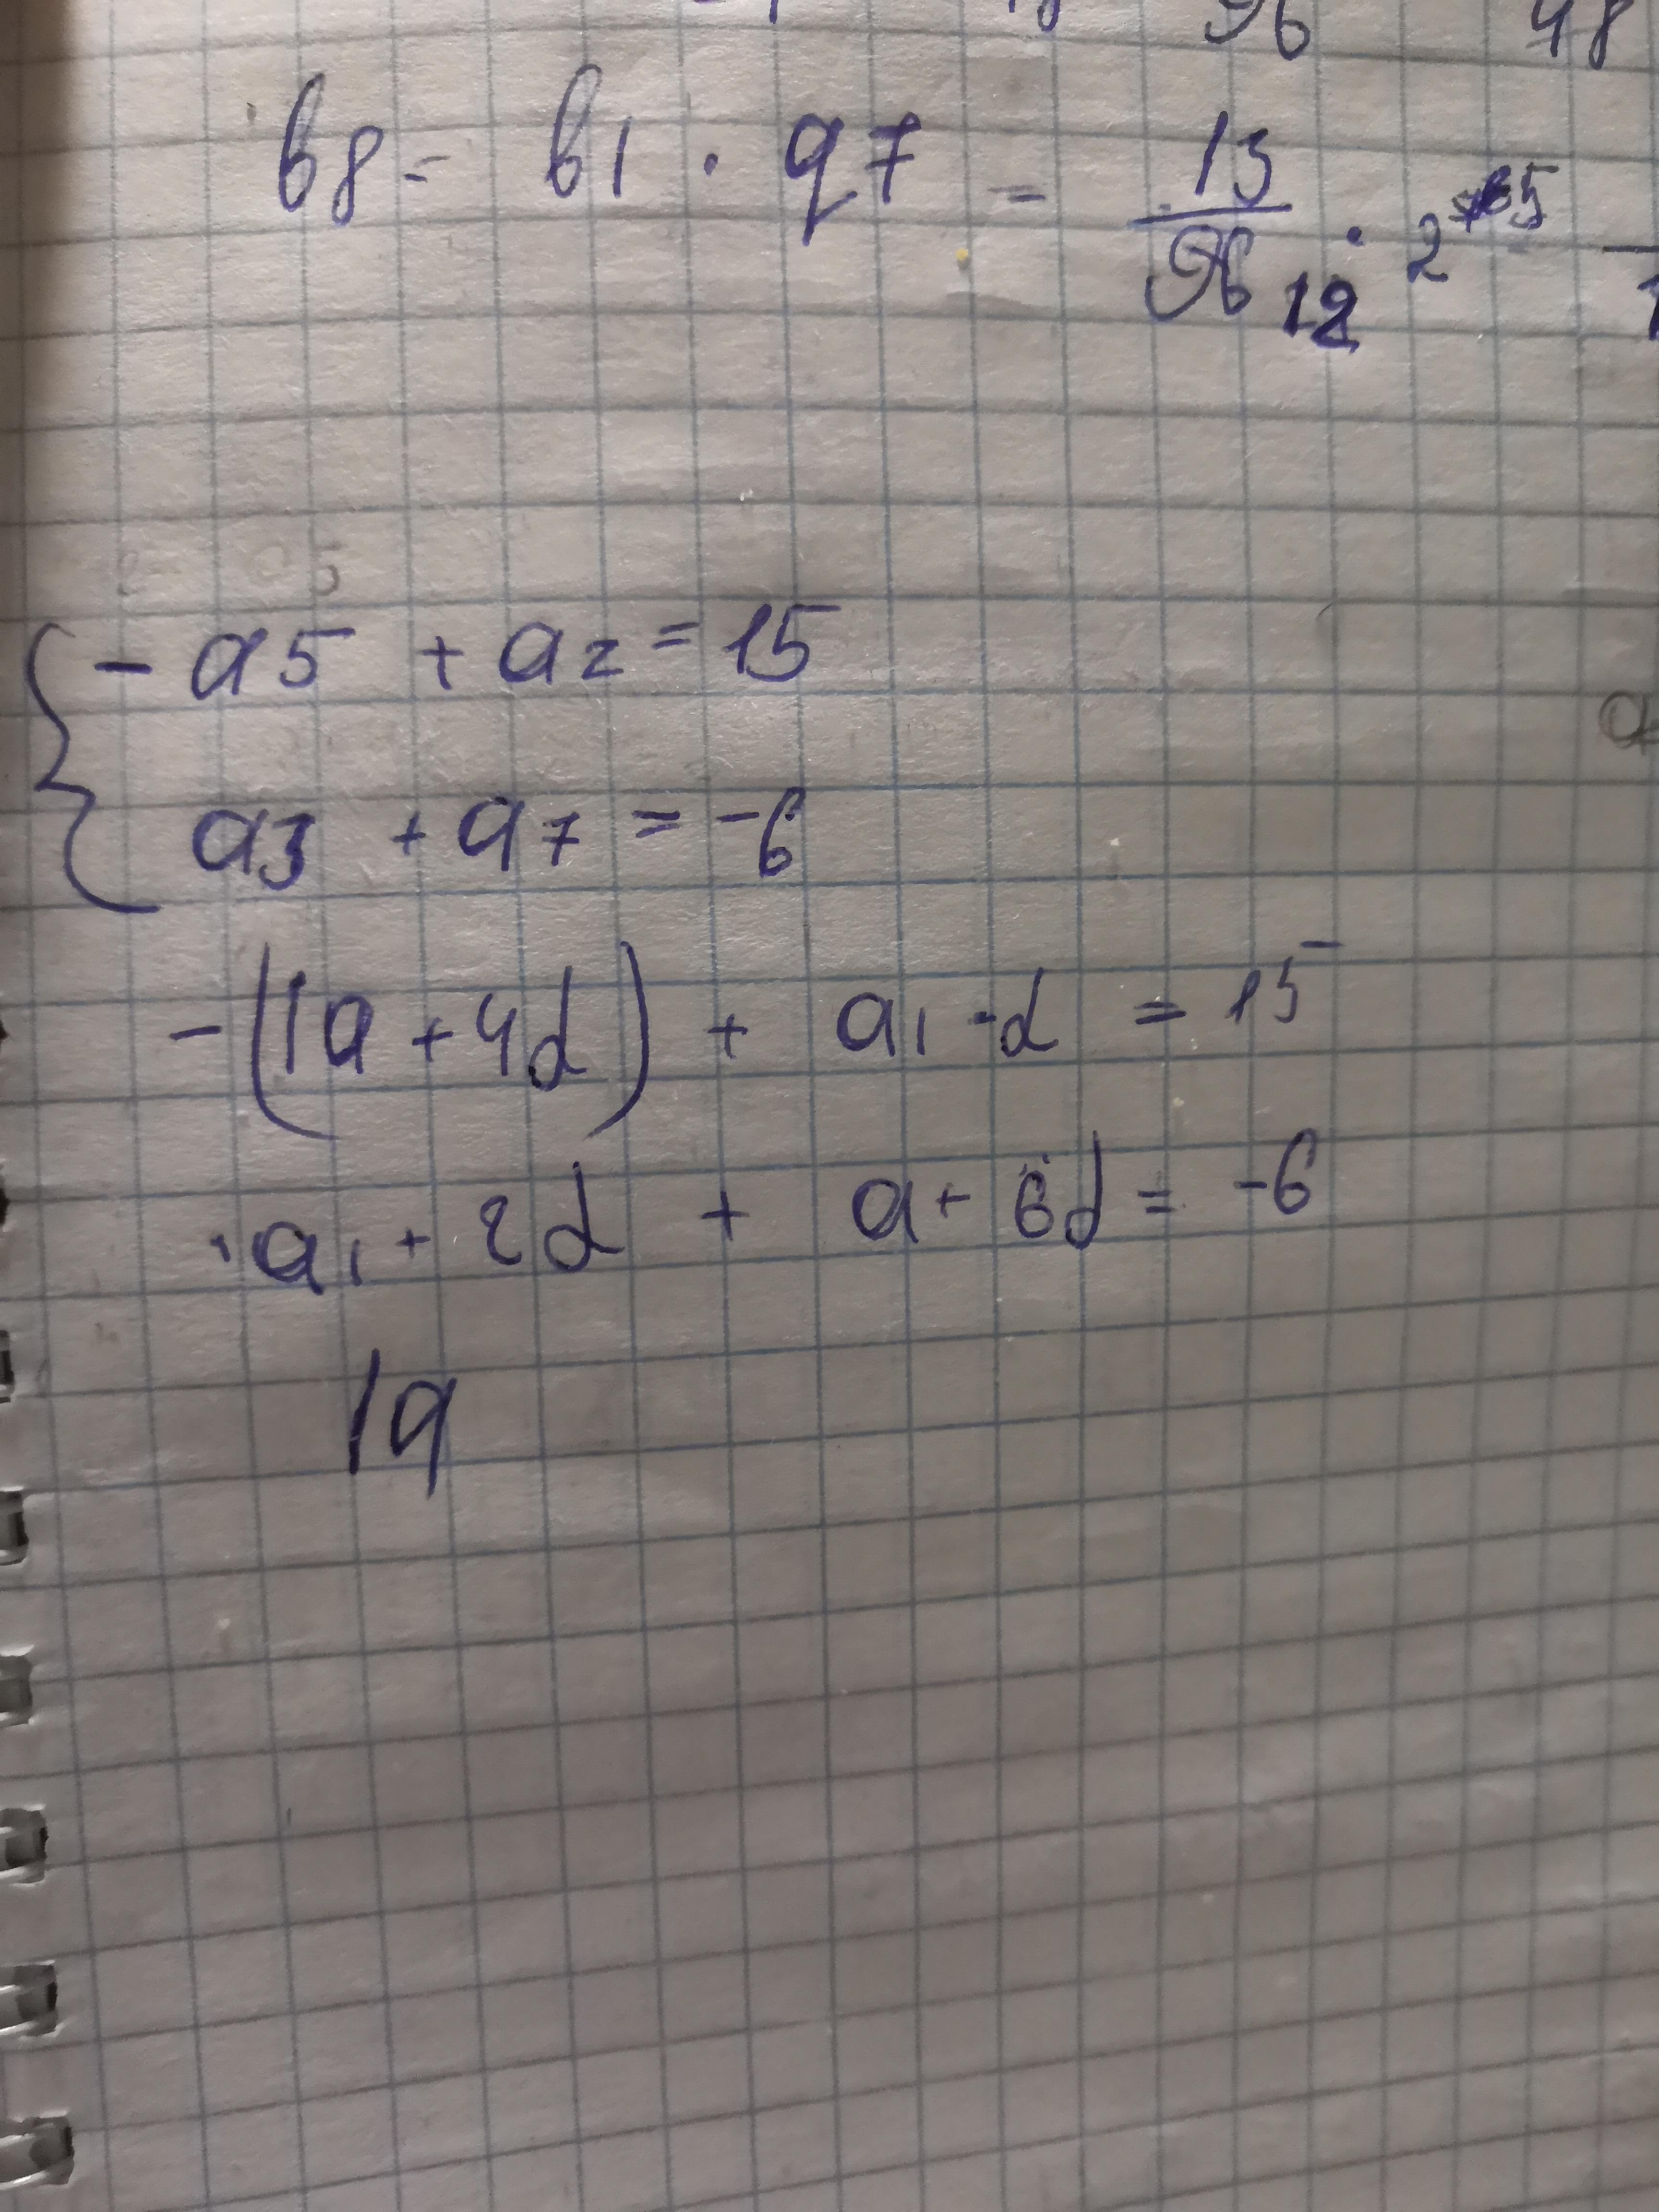 96 48
b8 = b1 · q7 = 13/96 12 · 2 5
- a5 + a2 = 15
a3 + a7 = -6
-(1a + 4d) + a1 - d = 15
a1 + 2d + a + 6d = -6
1a